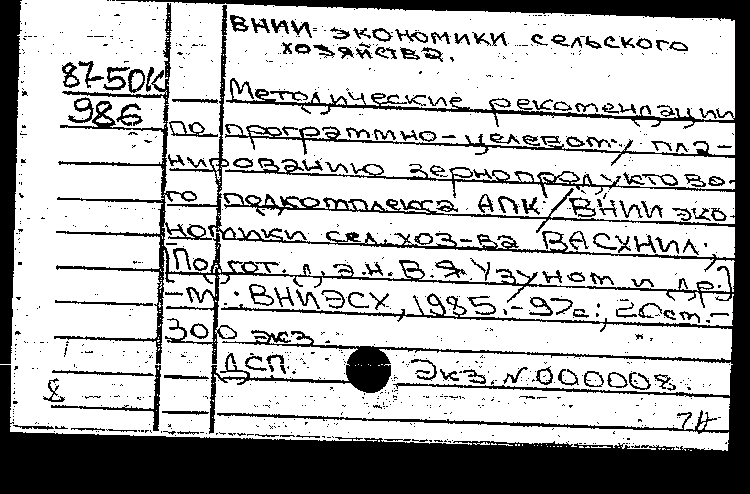 ВНИИ экономики сельского
хозяйства.
87-50К
986
Методические рекомендации
по программно-целевому пла-
нированию зернопродуктово-
го подкомплекса АПК / ВНИИ эко-
номики сел. хоз-ва ВАСХНИЛ;
[Подгот. д.э.н. В.Я. Узуном и др.]
-М.: ВНИЭСХ, 1985.-97с.; 20см.-
300 экз.
ДСП. Экз. N 000008.
8